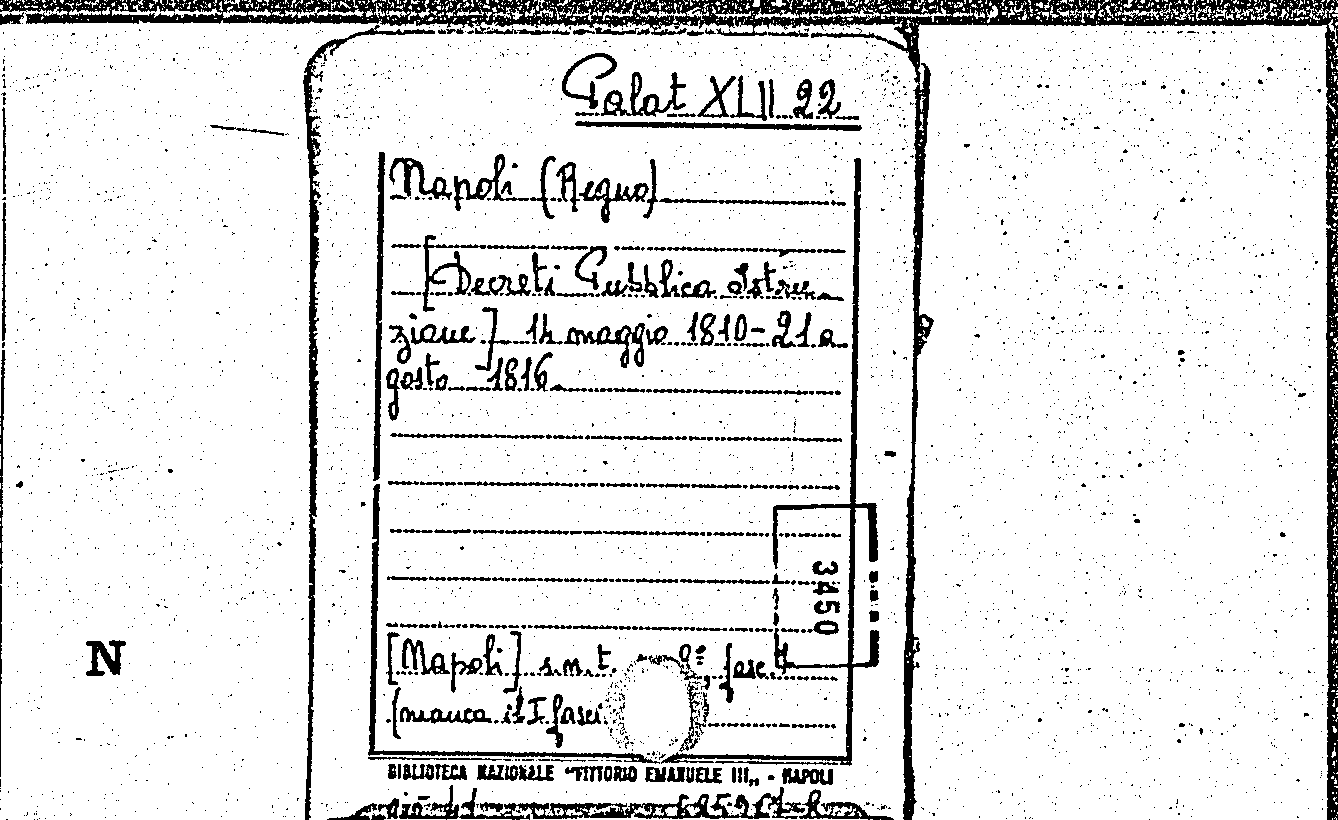 Palat XLII 22
Napoli (Regno)
[Decreti Pubblica Istru-
zione] 14 maggio 1810-21 a-
gosto 1816.
3450
[Napoli] s.n.t. 8°, fasc.
(manca il I fasci
N
BIBLIOTECA NAZIONALE "VITTORIO EMANUELE III„ - NAPOLI
già